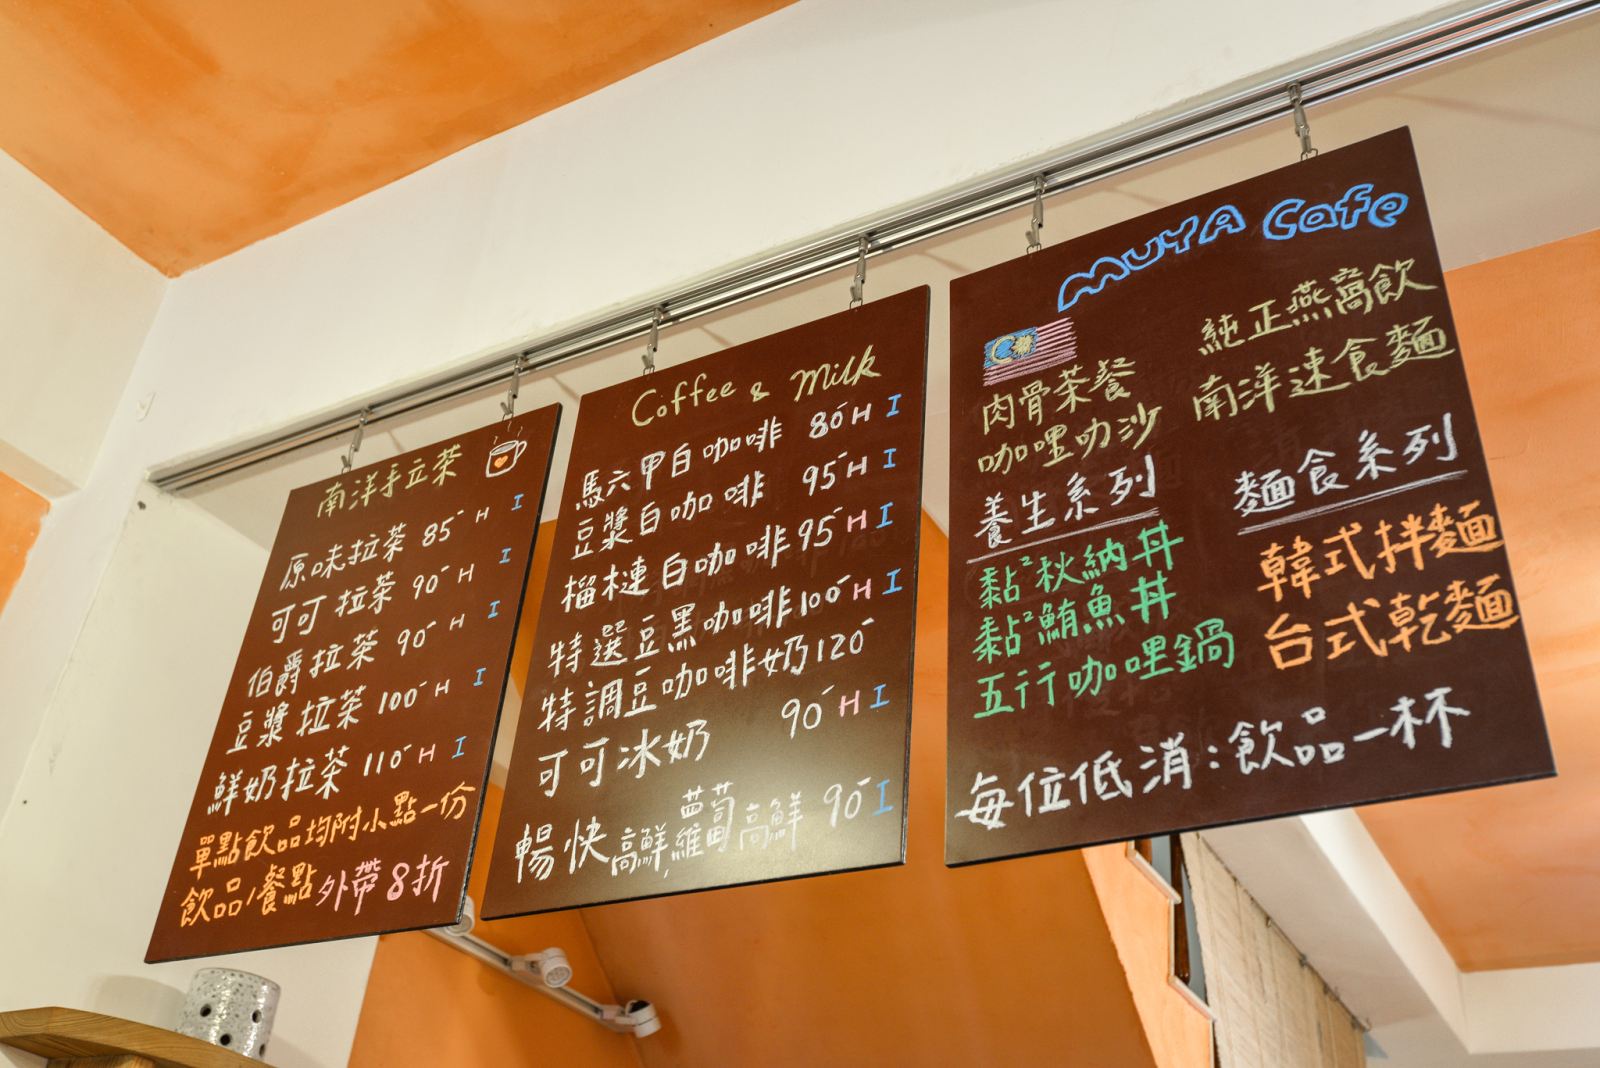 南洋手立茶
原味拉茶 85- H I
可可拉茶 90- H I
伯爵拉茶 90- H I
豆漿拉茶 100- H I
鮮奶拉茶 110- H I
單點飲品均附小點一份
飲品/餐點外帶8折
Coffee & Milk
馬六甲白咖啡 80- H I
豆漿白咖啡 95- H I
榴槤白咖啡 95- H I
特選豆黑咖啡 100- H I
特調豆咖啡奶 120-
可可冰奶 90- H I
暢快高鮮 高鮮 90- I
MUYA Cafe
純正燕窩飲
南洋速食麵
肉骨茶餐
咖哩叻沙
養生系列
黏²秋納丼
黏²鮪魚丼
五行咖哩鍋
麵食系列
韓式拌麵
台式乾麵
每位低消:飲品一杯